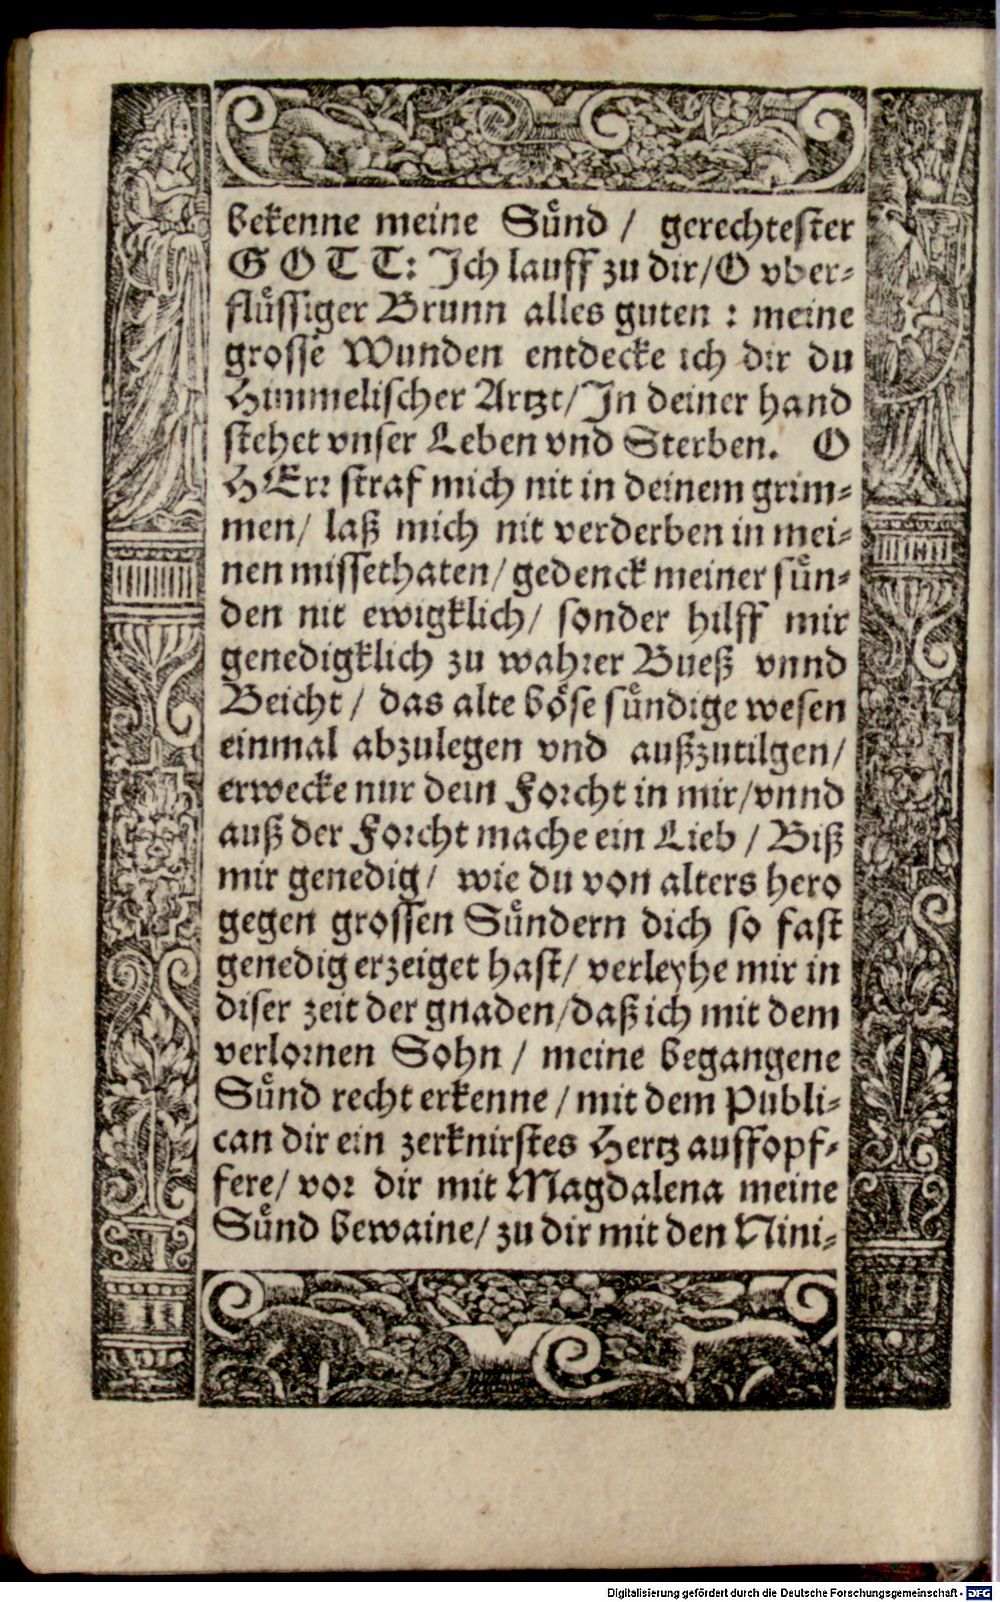 bekenne meine Suͤnd / gerechtester
GOTT: Jch lauff zu dir/O vber-
fluͤssiger Brunn alles guten : meine
grosse Wunden entdecke ich dir du
Himmelischer Artzt/Jn deiner hand
stehet vnser Leben vnd Sterben. O
HErr straf mich nit in deinem grim-
men/ laß mich nit verderben in mei-
nen missethaten/gedenck meiner suͤn-
den nit ewigklich/ sonder hilff mir
genedigklich zu wahrer Bueß vnnd
Beicht/ das alte boͤse suͤndige wesen
einmal abzulegen vnd außzutilgen/
erwecke nur dein Forcht in mir/vnnd
auß der Forcht mache ein Lieb / Biß
mir genedig/ wie du von alters hero
gegen grossen Suͤndern dich so fast
genedig erzeiget hast/ verleyhe mir in
diser zeit der gnaden/daß ich mit dem
verlornen Sohn / meine begangene
Suͤnd recht erkenne / mit dem Publi-
can dir ein zerknirstes Hertz auffopf-
fere/ vor dir mit Magdalena meine
Suͤnd bewaine/ zu dir mit den Nini-
Digitalisierung gefördert durch die Deutsche Forschungsgemeinschaft - DFG